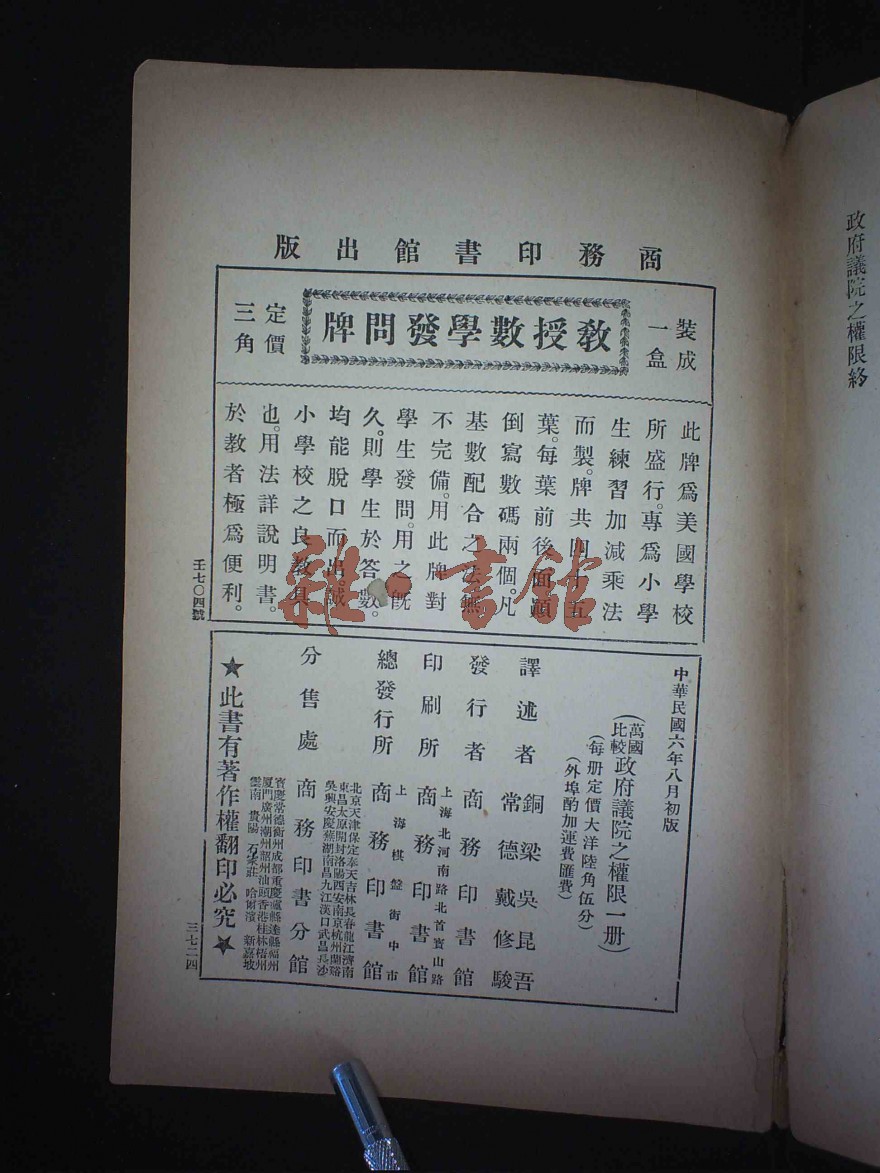 政府議院之權限終
商務印書館出版
裝成一盒
教授數學發問牌
定價三角
此牌爲美國學校
所盛行。專爲小學
生練習加減乘法
而製。牌共四十五
葉。每葉前後面顚
倒寫數碼兩個。凡
基數配合之法無
不完備。用此牌對
學生發問。用之旣
久。則學生於答數。
均能脫口而出。誠
小學校之良教具
也。用法詳說明書。
於教者極爲便利。
壬七〇四號
中華民國六年八月初版
(萬國比較政府議院之權限一册)
(每册定價大洋陸角伍分)
(外埠酌加運費匯費)
譯述者 銅梁吳昆吾 常德戴修駿
發行者 商務印書館
上海北河南路北首寶山路
印刷所 商務印書館
上海棋盤街中市
總發行所 商務印書館
北京天津保定奉天吉林長春龍江濟南
東昌太原開封洛陽西安南京杭州蘭谿
吳興安慶蕪湖南昌九江漢口武昌長沙
分售處 商務印書分館
寶慶常德衡州成都重慶瀘縣達縣福州
厦門廣州潮州韶州汕頭香港桂林梧州
雲南 貴陽 石家莊 哈爾濱 新嘉坡
★此書有著作權翻印必究★
三七二四
雜·書館